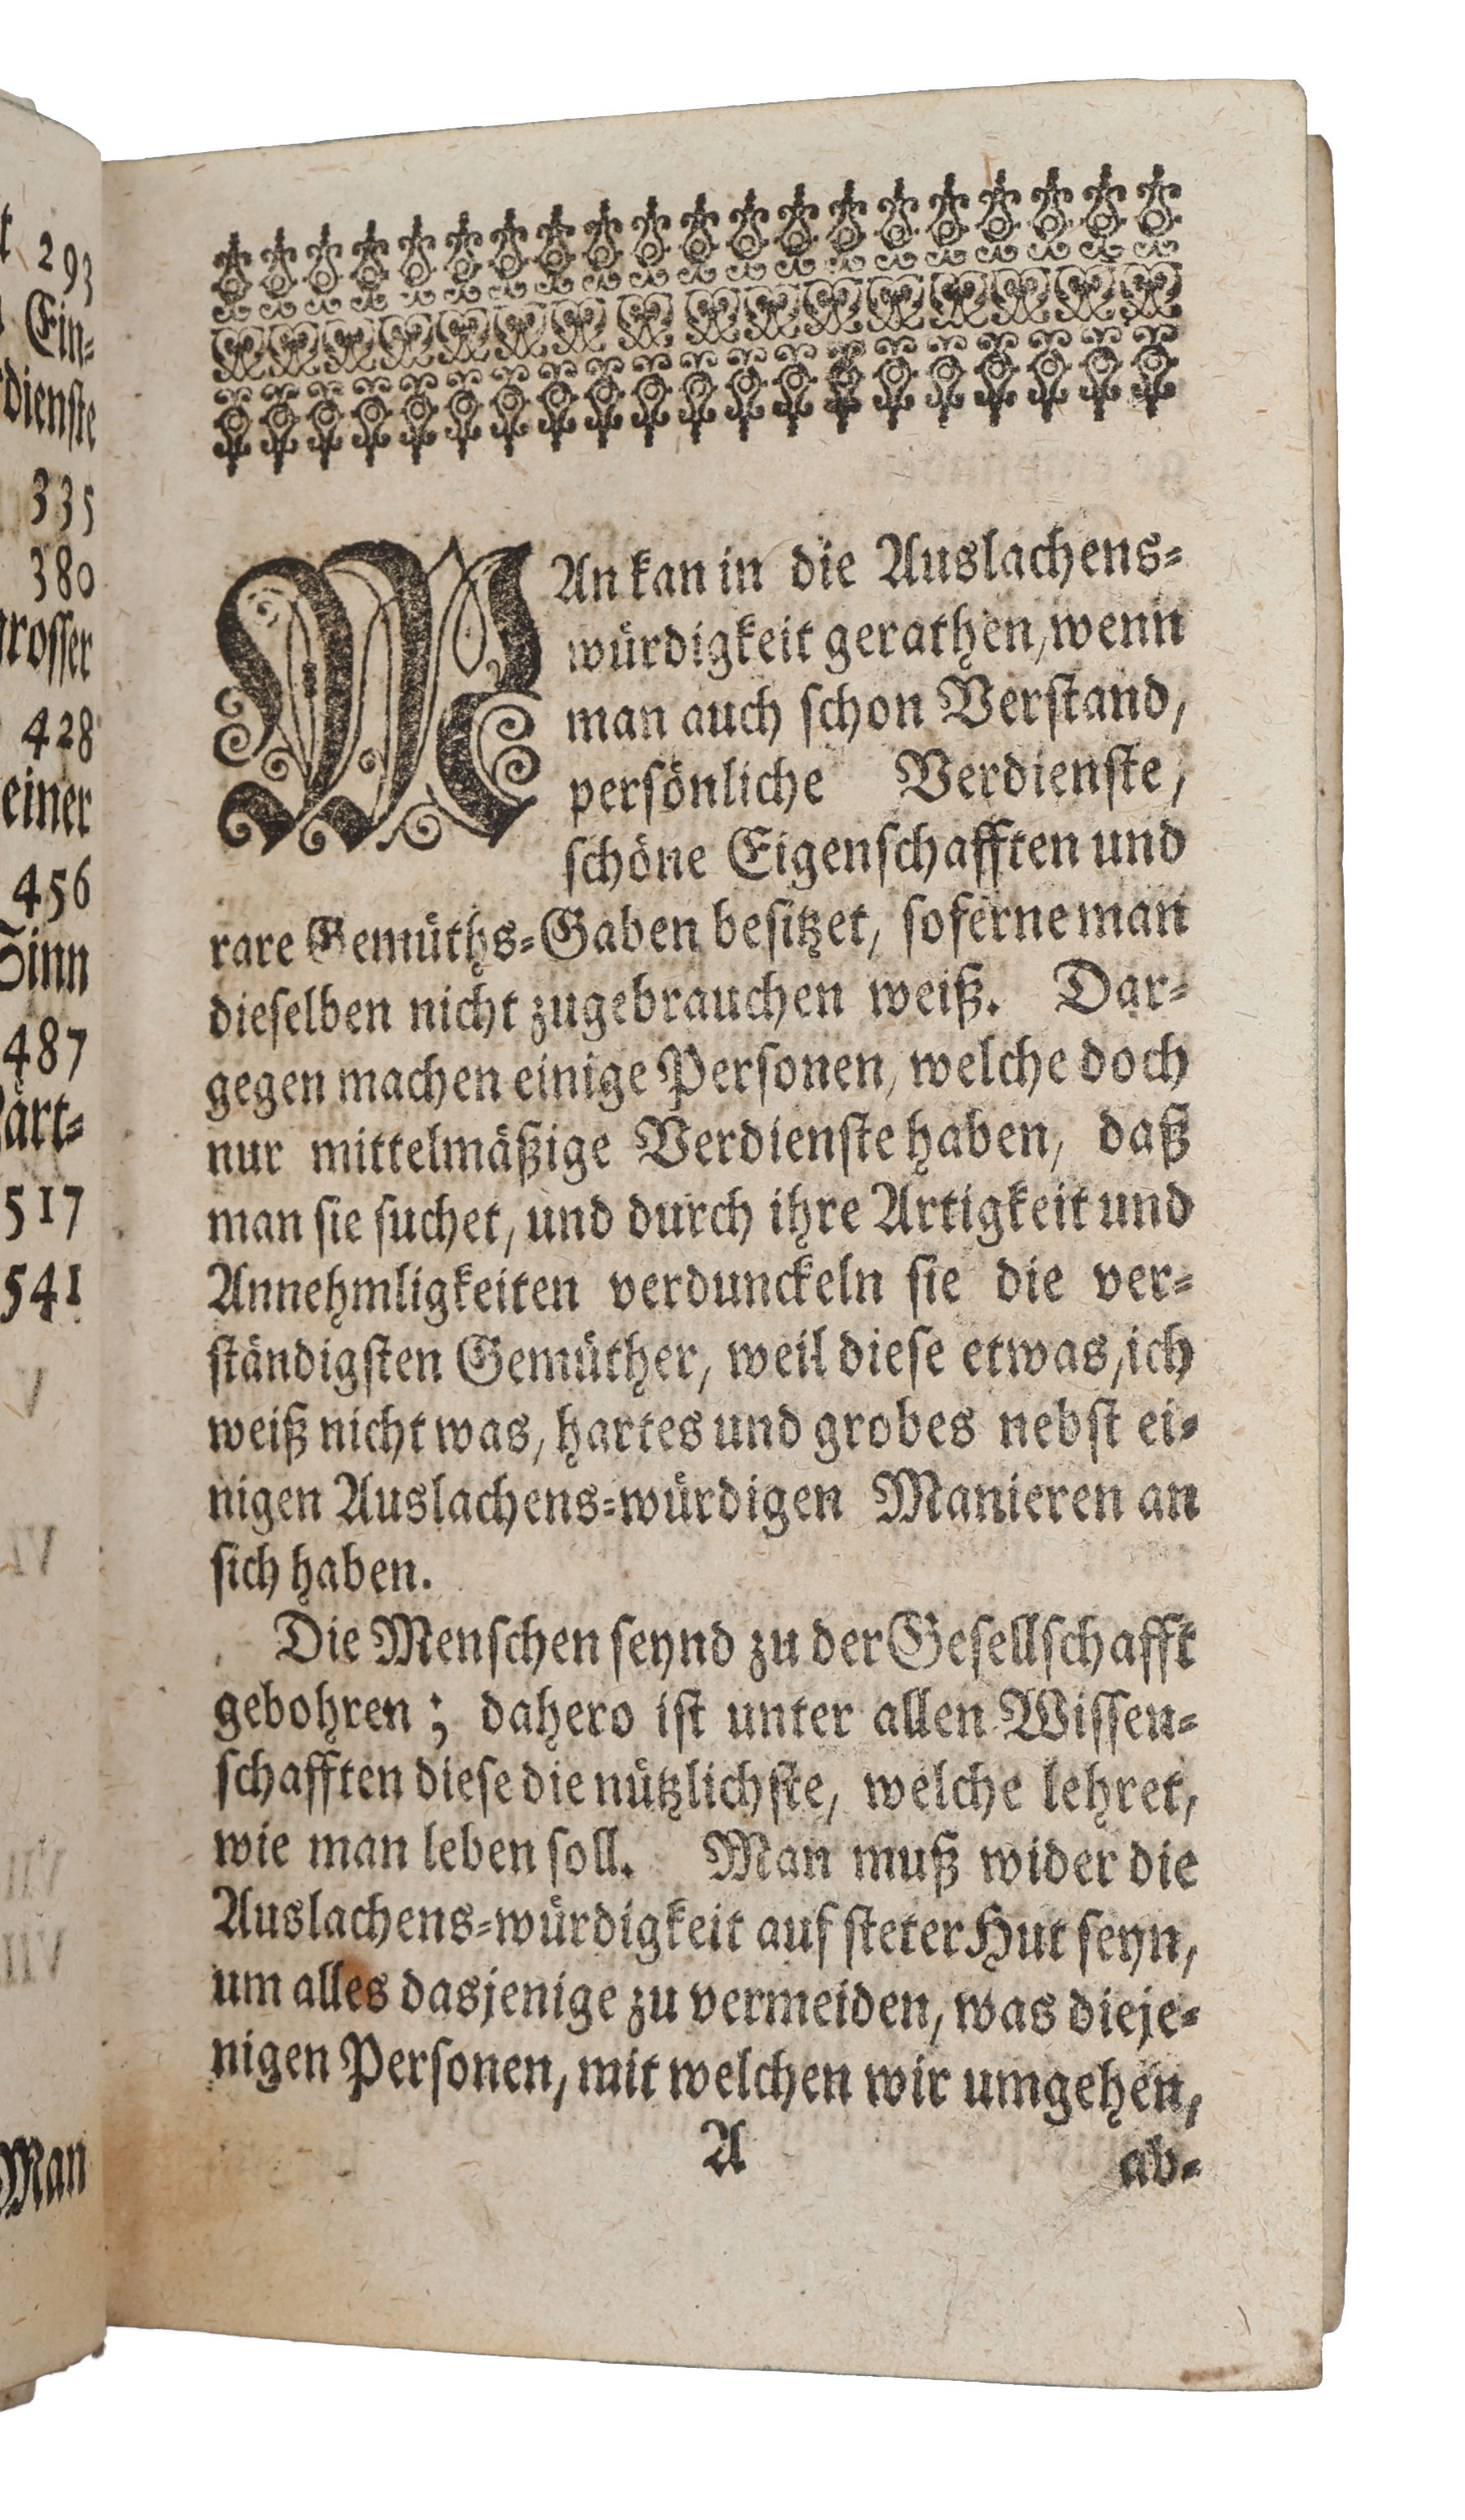 t 293
Ein-
dienste
335
380
grosser
428
einer
456
Sinn
487
ärt-
517
541
Man
MAn kan in die Auslachens-
würdigkeit gerathen, wenn
man auch schon Verstand,
persönliche Verdienste,
schöne Eigenschafften und
rare Gemüths-Gaben besitzet, soferne man
dieselben nicht zugebrauchen weiß. Dar-
gegen machen einige Personen, welche doch
nur mittelmäßige Verdienste haben, daß
man sie suchet, und durch ihre Artigkeit und
Annehmligkeiten verdunckeln sie die ver-
ständigsten Gemüther, weil diese etwas, ich
weiß nicht was, hartes und grobes nebst ei-
nigen Auslachens-würdigen Manieren an
sich haben.
Die Menschen seynd zu der Gesellschafft
gebohren; dahero ist unter allen Wissen-
schafften diese die nützlichste, welche lehret,
wie man leben soll. Man muß wider die
Auslachens-würdigkeit auf steter Hut seyn,
um alles dasjenige zu vermeiden, was dieje-
nigen Personen, mit welchen wir umgehen,
A ab-